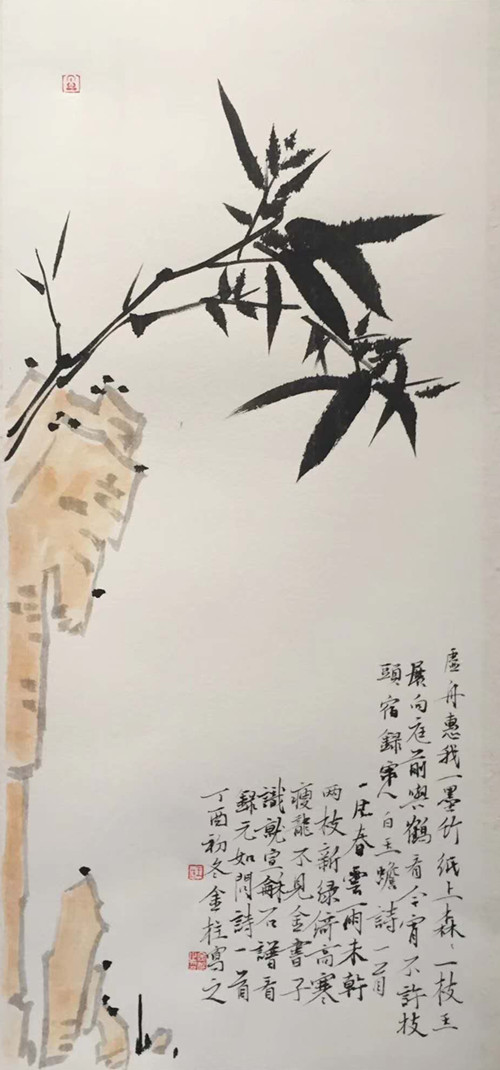 虛舟惠我一墨竹紙上森〻一枝玉
展向庭前與鶴看今宵不許枝
頭宿錄宋人白玉蟾詩一首
一片春雲雨未乾
两枝新綠倚高寒
瘦龍不見金書子
識就宣龢石譜看
錄元如問詩一首
丁酉初冬金柱寫之